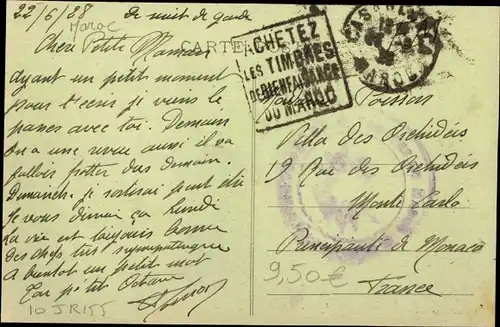 22/6/28 de nuit de garde
Maroc
Chère Petite Maman
CARTE
ayant un petit moment
pour t'écrire je viens le
passer avec toi. Demain
On a une revue aussi il va
falloir frotter dur demain.
Dimanche je sortirai peut être
Je vous dirai ça lundi
La vie est toujours bonne
des chefs très sympathiques
A bientôt un petit mot
Ton p'tit Octave
10 JR155
ACHETEZ
LES TIMBRES
DE BIENFAISANCE
DU MAROC
CASABLANCA
MAROC
Poisson
Villa des Orchidées
19 Rue des Orchidées
Monte Carlo
Principauté de Monaco
France
9,50€